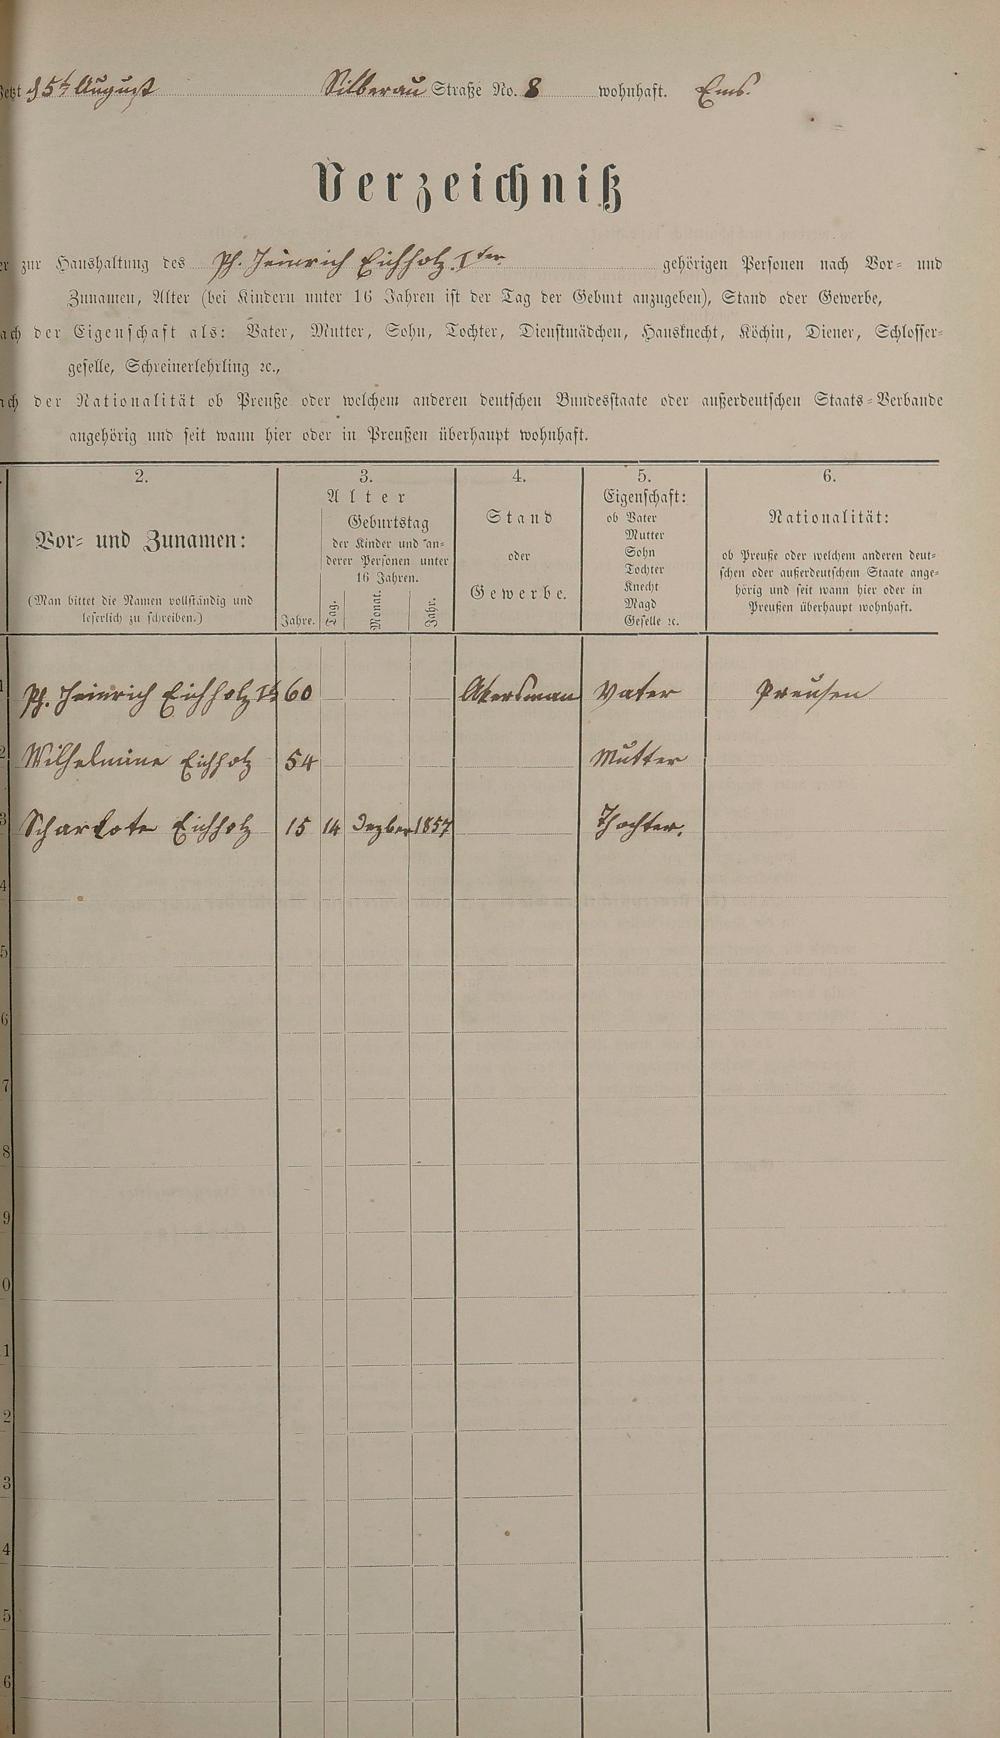 Jetzt d 5t August Silberau Straße No. 8 wohnhaft. Ems.
Verzeichniß
er zur Haushaltung des Ph. Heinrich Eichholz Iter gehörigen Personen nach Vor- und
Zunamen, Alter (bei Kindern unter 16 Jahren ist der Tag der Geburt anzugeben), Stand oder Gewerbe,
ach der Eigenschaft als: Vater, Mutter, Sohn, Tochter, Dienstmädchen, Hausknecht, Köchin, Diener, Schlosser-
geselle, Schreinerlehrling ꝛc.,
ach der Nationalität ob Preuße oder welchem anderen deutschen Bundesstaate oder außerdeutschen Staats-Verbande
angehörig und seit wann hier oder in Preußen überhaupt wohnhaft.
2. 3. 4. 5. 6.
Vor- und Zunamen:
(Man bittet die Namen vollständig und
leserlich zu schreiben.)
Alter
Jahre.
Geburtstag
der Kinder und an-
derer Personen unter
16 Jahren.
Tag. Monat. Jahr.
Stand
oder
Gewerbe.
Eigenschaft:
ob Vater
Mutter
Sohn
Tochter
Knecht
Magd
Geselle ꝛc.
Nationalität:
ob Preuße oder welchem anderen deut-
schen oder außerdeutschem Staate ange-
hörig und seit wann hier oder in
Preußen überhaupt wohnhaft.
1 Ph. Heinrich Eichholz It 60 Akersman Vater Preusen
2 Wilhelmine Eichholz 54 Mutter
3 Scharlote Eichholz 15 14 Dezber 1857 Thochter.
4
5
6
7
8
9
0
1
2
3
4
5
6